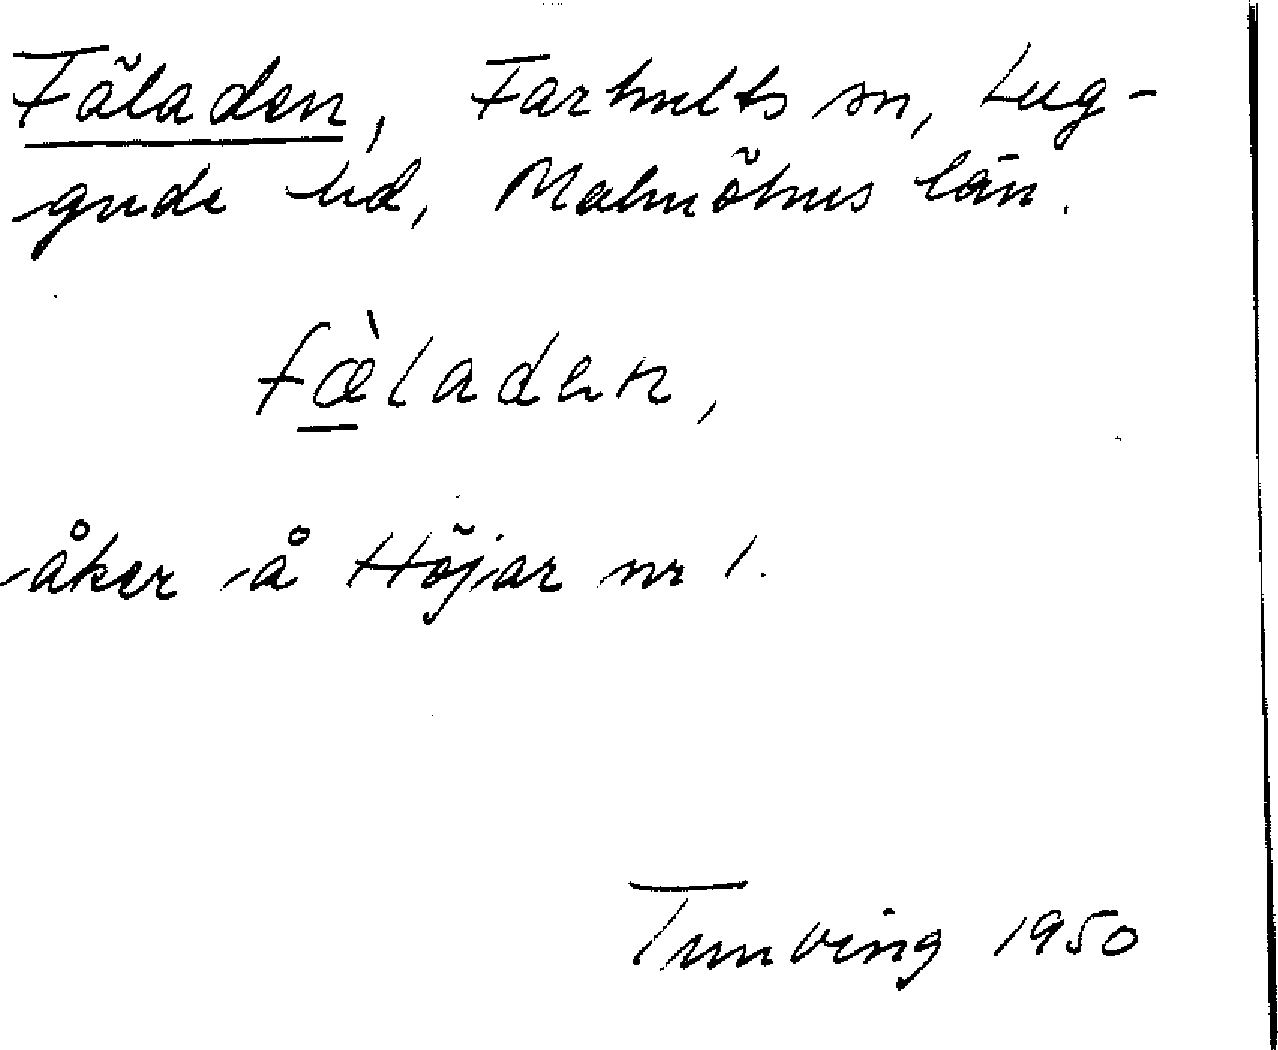 Fäladen, Farhults sn, Lug-
gude hd, Malmöhus län.
fæ̀ladεn,
åker å Höjar nr 1.
Tunving 1950